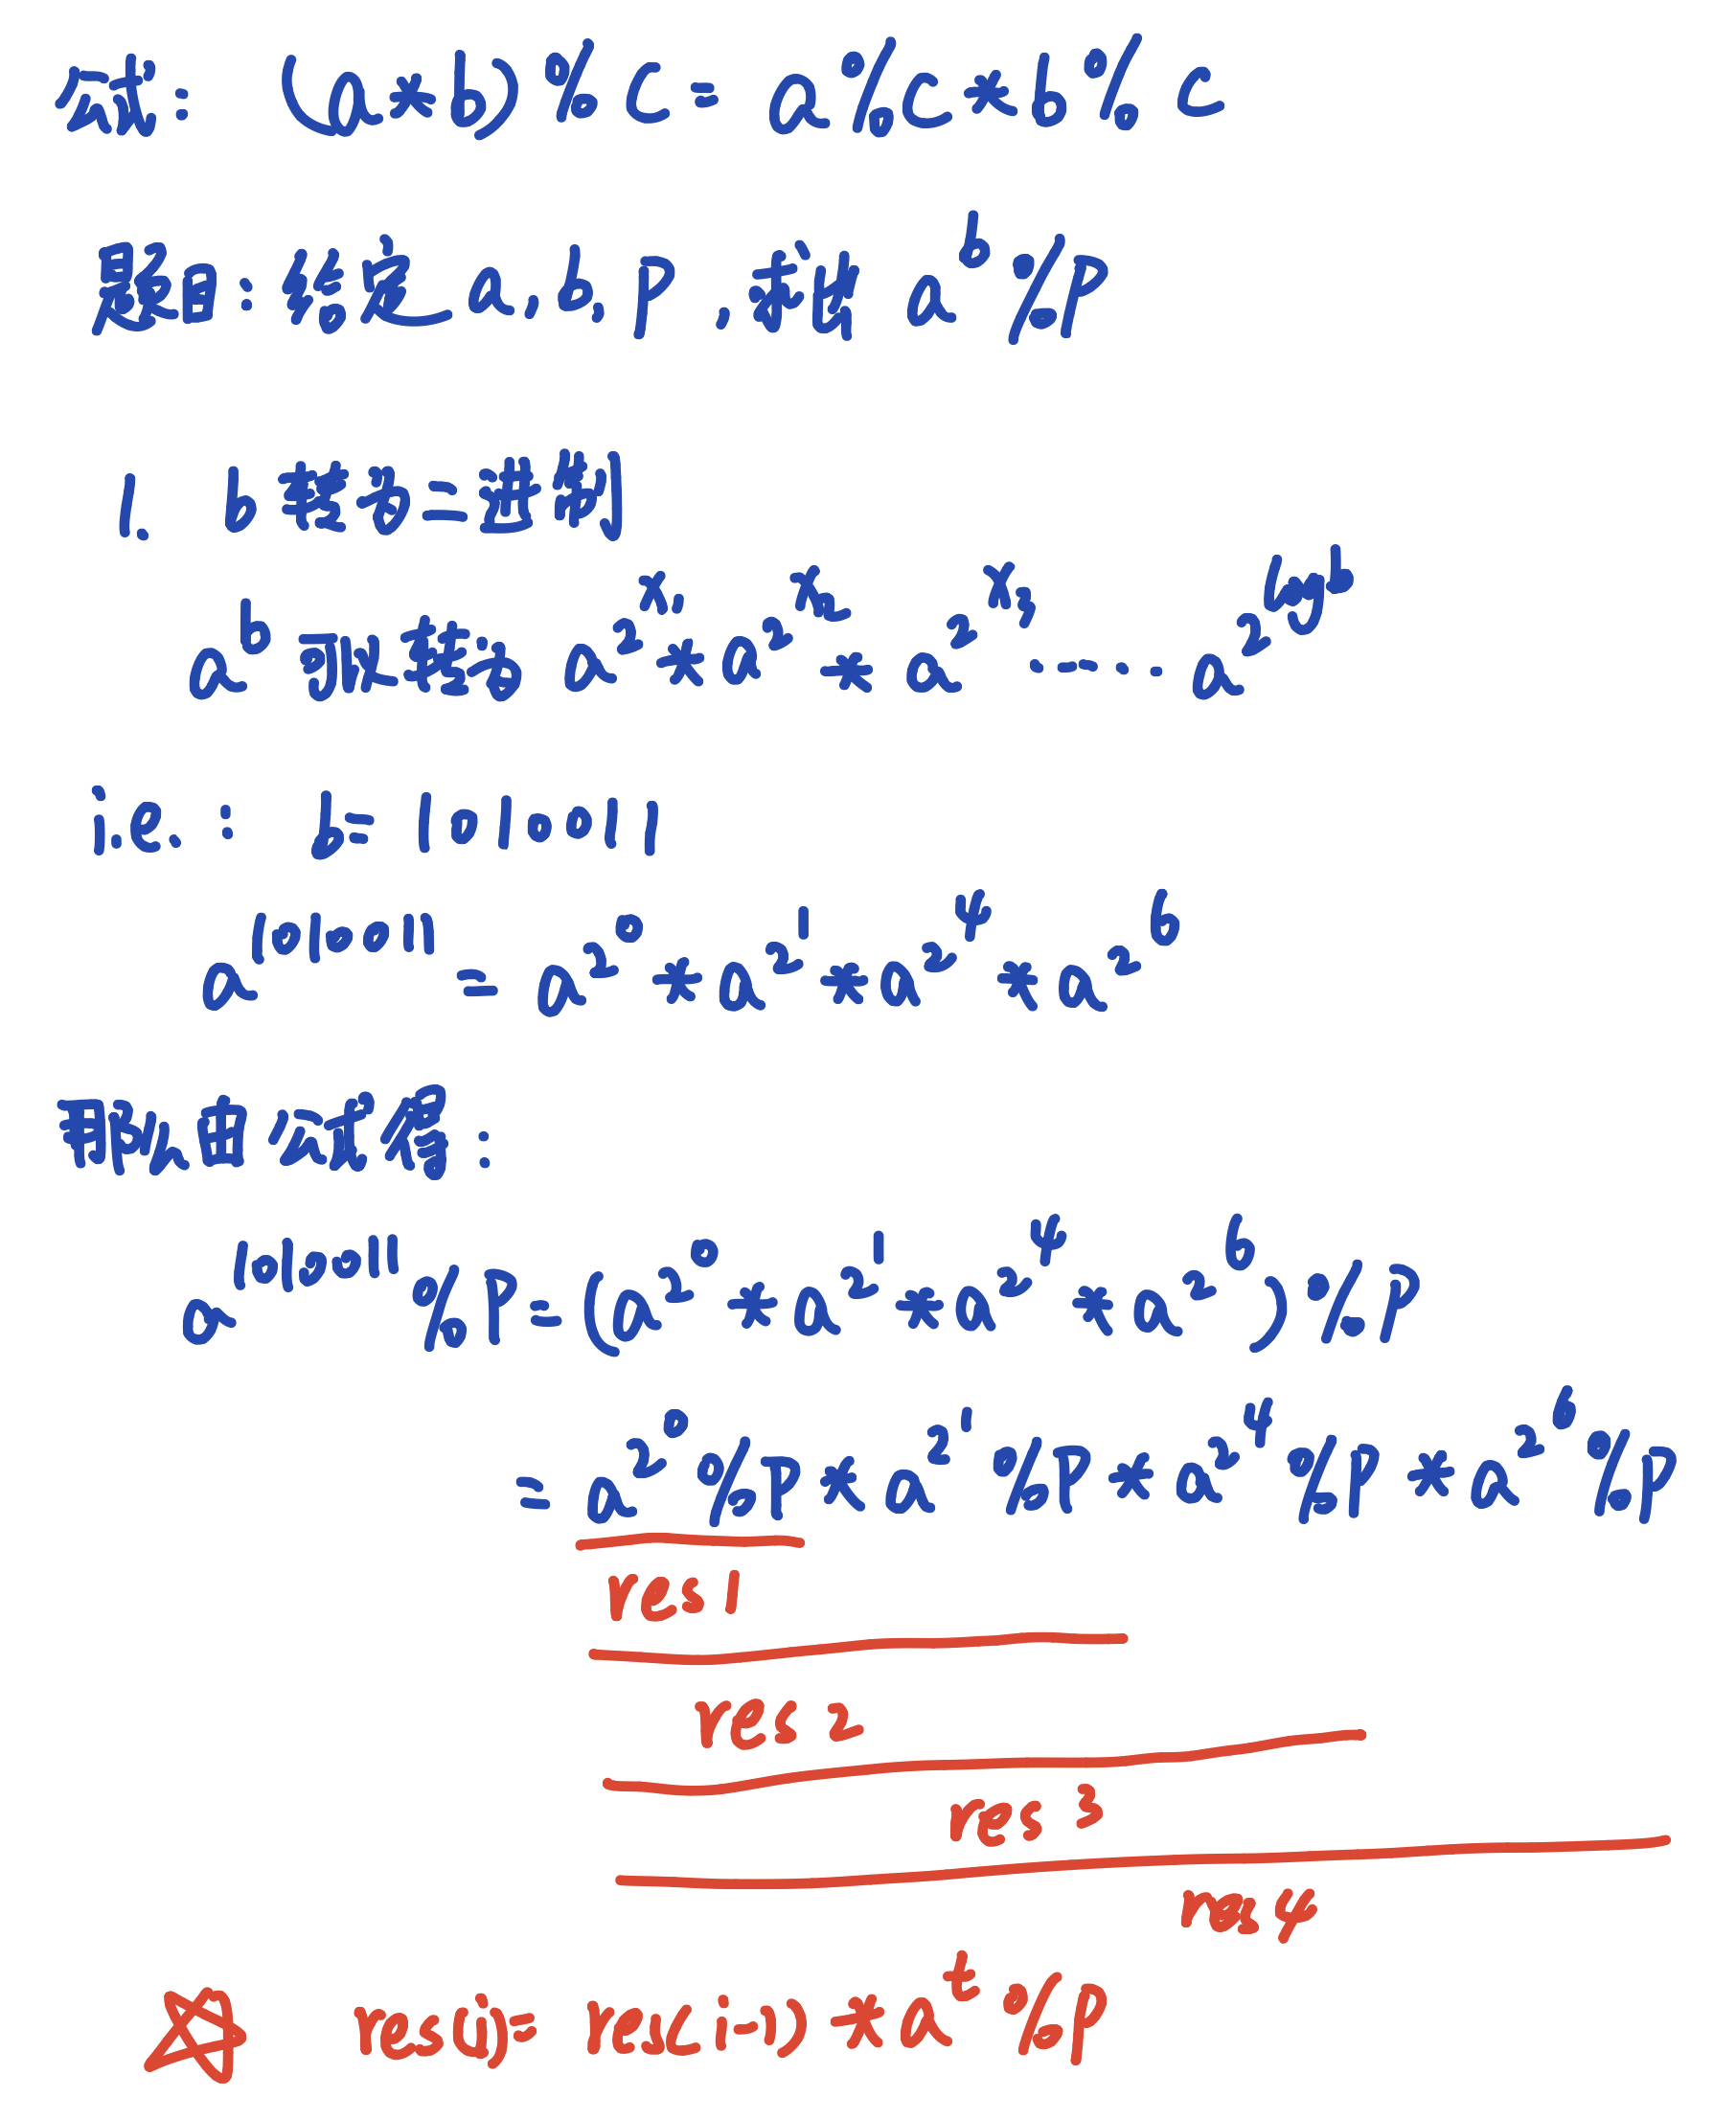 公式： (a*b)%c = a%c*b%c
题目：给定a,b,p,求出 a^b%p
1. b转为二进制
a^b可以转为 a^2^x1 * a^2^x2 * a^2^x3 ...... a^2^logb
i.e.: b=1010011
a^1010011 = a^2^0 * a^2^1 * a^2^4 * a^2^6
那么由公式得：
a^1010011%p = (a^2^0 * a^2^1 * a^2^4 * a^2^6)%p
= a^2^0%p * a^2^1%p * a^2^4%p * a^2^6%p
res1
res2
res3
res4
res(i)= res(i-1) * a^t%p